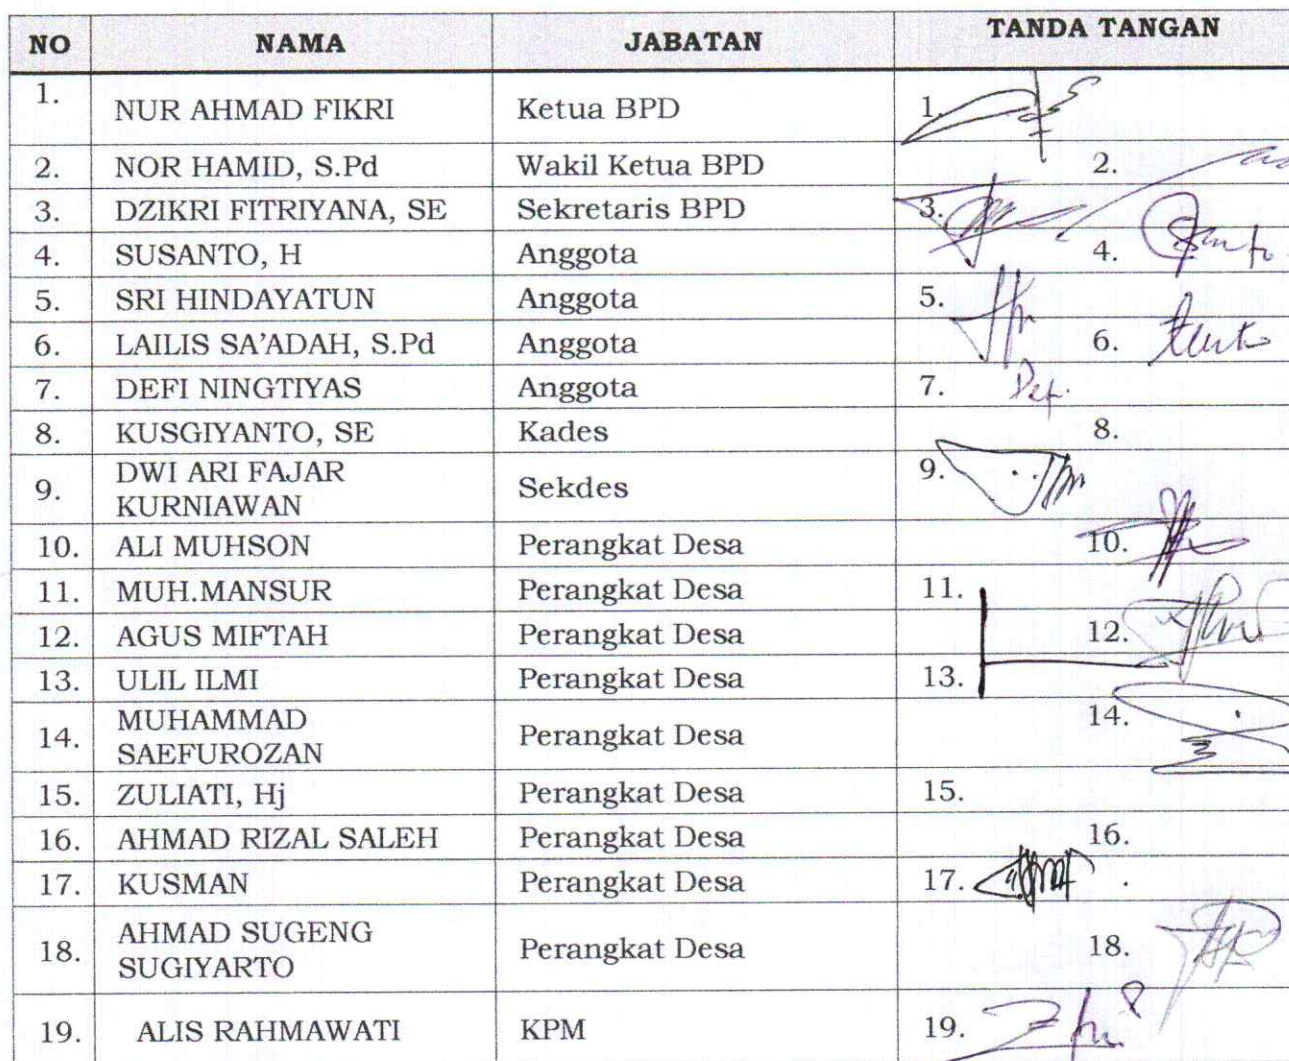 NO NAMA JABATAN TANDA TANGAN
1. NUR AHMAD FIKRI Ketua BPD 1.
2. NOR HAMID, S.Pd Wakil Ketua BPD 2.
3. DZIKRI FITRIYANA, SE Sekretaris BPD 3.
4. SUSANTO, H Anggota 4.
5. SRI HINDAYATUN Anggota 5.
6. LAILIS SA'ADAH, S.Pd Anggota 6.
7. DEFI NINGTIYAS Anggota 7. Defi
8. KUSGIYANTO, SE Kades 8.
9. DWI ARI FAJAR
KURNIAWAN Sekdes 9.
10. ALI MUHSON Perangkat Desa 10.
11. MUH.MANSUR Perangkat Desa 11.
12. AGUS MIFTAH Perangkat Desa 12.
13. ULIL ILMI Perangkat Desa 13.
14. MUHAMMAD
SAEFUROZAN Perangkat Desa 14.
15. ZULIATI, Hj Perangkat Desa 15.
16. AHMAD RIZAL SALEH Perangkat Desa 16.
17. KUSMAN Perangkat Desa 17.
18. AHMAD SUGENG
SUGIYARTO Perangkat Desa 18.
19. ALIS RAHMAWATI KPM 19.